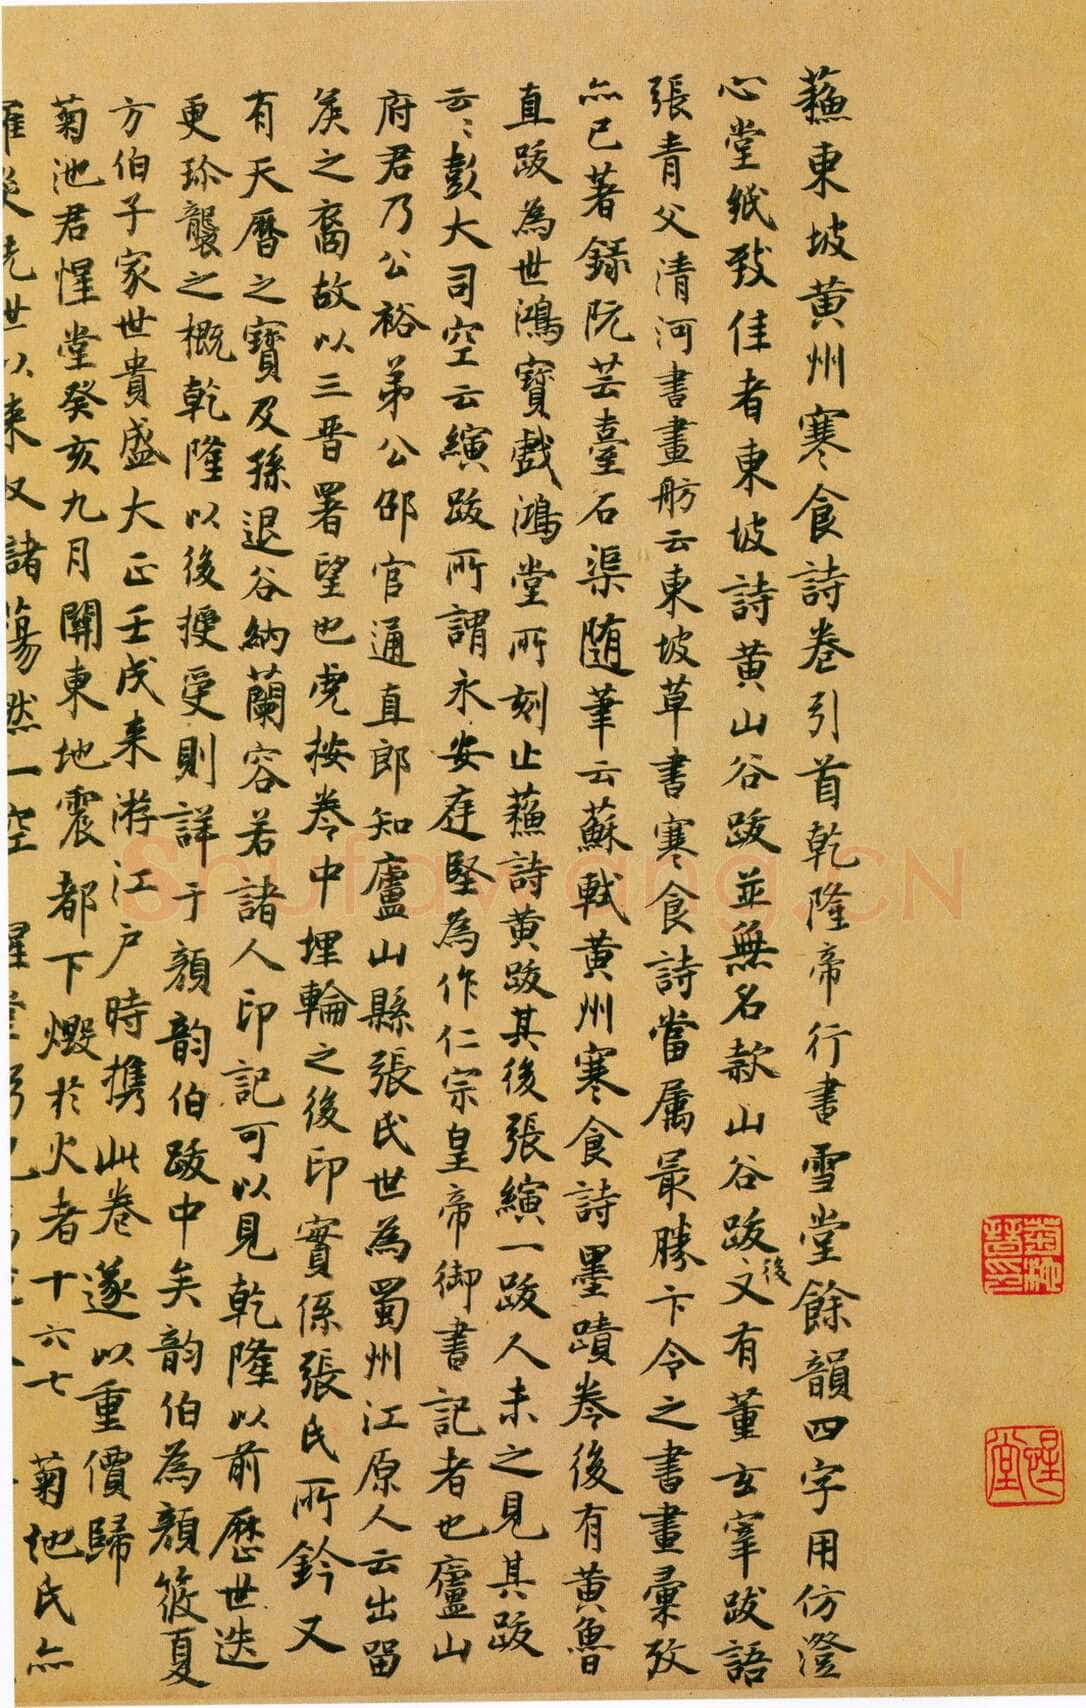 蘓東坡黄州寒食詩卷引首乾隆帝行書雪堂餘韻四字用仿澄
心堂紙致佳者東坡詩黄山谷跋並無名款山谷跋後文有董玄宰跋語
張青父清河書畫舫云東坡草書寒食詩當属最勝卞令之書畫彙攷
亦已著録阮芸臺石渠随筆云蘇軾黄州寒食詩墨蹟卷後有黄魯
直跋為世鴻寶戲鴻堂所刻止蘓詩黄跋其後張縯一跋人未之見其跋
云〻彭大司空云縯跋所謂永安庭堅為作仁宗皇帝御書記者也廬山
府君乃公裕弟公邵官通直郎知廬山縣張氏世為蜀州江原人云出留
矦之裔故以三晋署望也虎按卷中埋輪之後印實係張氏所鈐又
有天曆之寶及孫退谷納蘭容若諸人印記可以見乾隆以前歴世迭
更珎襲之概乾隆以後授受則詳于顔韵伯跋中矣韵伯為顔筱夏
方伯子家世貴盛大正壬戌来游江户時携此卷遂以重價歸
菊池君惺堂癸亥九月關東地震都下燬於火者十六七菊池氏亦
先世以来又諸蕩然一空
菊池晋印
惺堂
Shufawang.CN